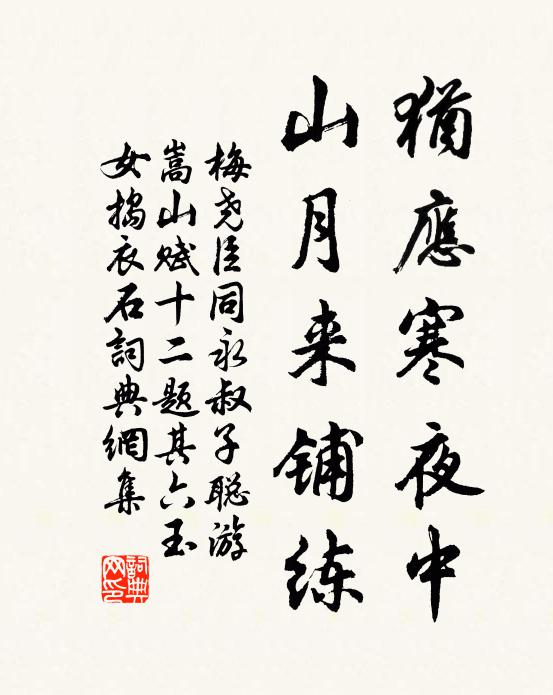 猶應寒夜中
山月来铺练
梅尧臣同永叔子聪游
嵩山赋十二题其六玉
女捣衣石詞典網集
詞典网印